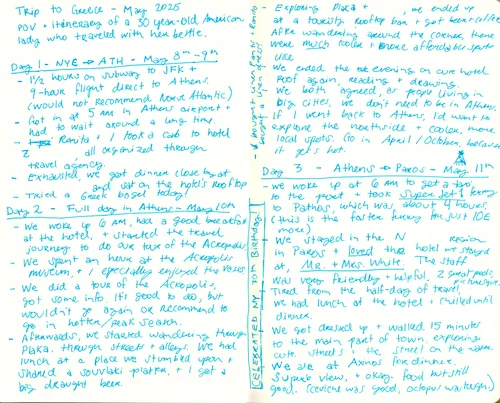 Trip to Greece - May 2025
POV + itinerary of a 30 year-old American
lady who traveled with her bestie.
Day 1 - NYC → ATH - May 8th-9th
- 1 1/2 hours on subway to JFK +
9-hour flight direct to Athens.
(would not recommend Norse Atlantic)
- Got in at 5 am in Athens airport +
had to wait around a long time.
- Ramita + I took a cab to hotel
all organized through
travel agency.
- Exhausted, we got dinner close by at
and sat on the hotel's rooftop
- Tried a Greek bagel today!
Day 2 - Full day in Athens - May 10th
- We woke up 6 AM, had a good breakfast
at the hotel, + started the travel
journey to do our tour of the Acropolis
- We spent an hour at the Acropolis
museum, + I especially enjoyed the vases
- We did a tour of the Acropolis,
got some info. It's good to do, but
wouldn't go again or recommend to
go in hotter/peak season.
- Afterwards, we started wandering through
Plaka, through streets + alleys. We had
lunch at a place we stumbled upon +
shared a souvlaki platter, + I got a
big draught beer.
- Exploring Plaka + we ended up
at a touristy rooftop bar + got beer + coffee
After wandering around the corner, there
were much cooler + more affordable spots
like
- We ended the evening on our hotel
roof again, reading + drawing.
- We both agreed, as people living in
big cities, we don't need to be in Athens
If I went back to Athens, I'd want to
explore the northside + cooler, more
local spots. Go in April / October, because
it gets hot.
- I bought
bought a linen dress!
Day 3 - Athens → Paros - May 11th
- we woke up at 6 AM to get a taxi
to the port + took SuperJet ferry
to Paros, which was about 4 hours.
(this is the faster ferry for just 10€
more)
- We stayed in the N region
in Paros + loved the hotel we stayed
at, Mr. + Mrs. White. The staff
was very friendly + helpful, 2 great pools,
picturesque.
- Tired from the half-day of travel,
we had lunch at the hotel + chilled until
dinner.
- We got dressed up + walked 15 minutes
to the main part of town, exploring
cute streets + the street on the water.
- We ate at Axinos for dinner.
Superb view, + okay food but still
good. (ceviche was good, octopus was tough)
CELEBRATED MY 30TH BIRTHDAY